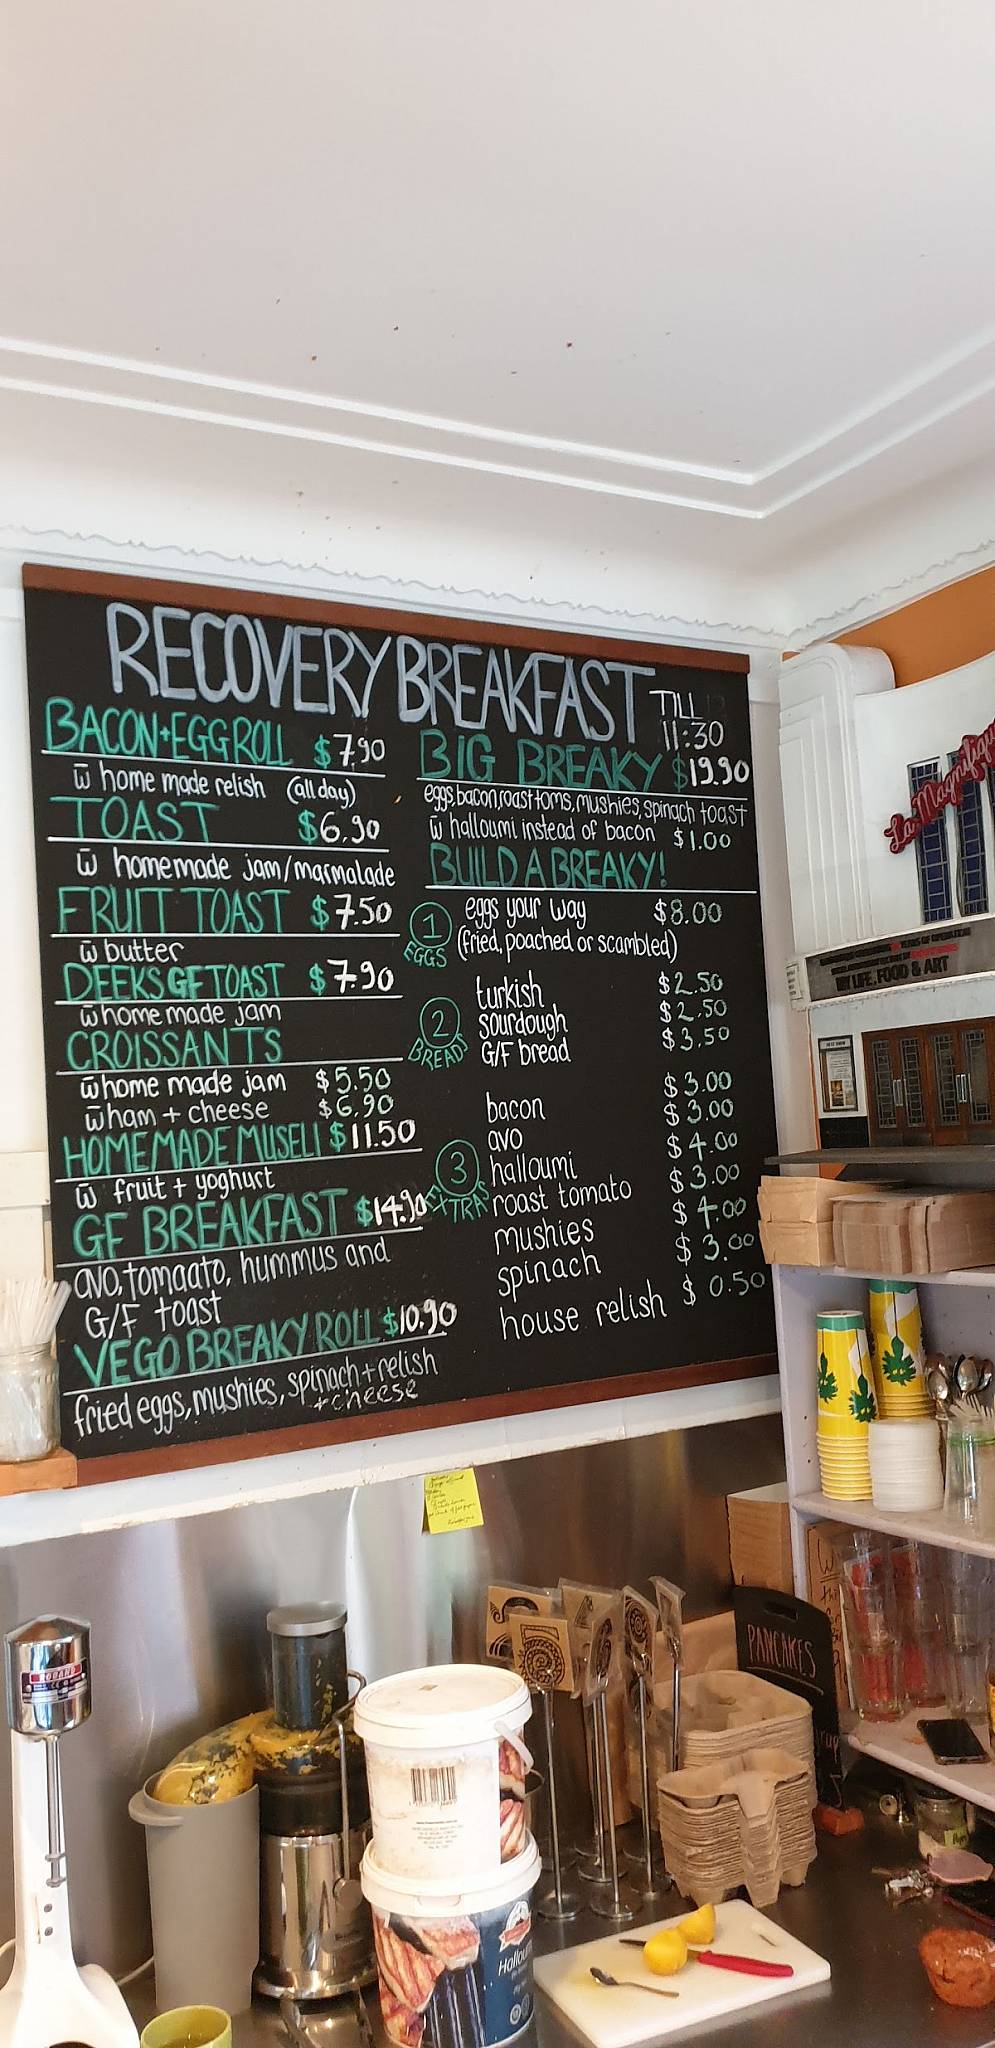 RECOVERY BREAKFAST TILL 11:30
BACON+EGG ROLL $7.90
w̄ home made relish (all day)
TOAST $6.90
w̄ homemade jam/marmalade
FRUIT TOAST $7.50
w̄ butter
DEEKS GF TOAST $7.90
w̄ home made jam
CROISSANTS
w̄ home made jam $5.50
w̄ ham + cheese $6.90
HOMEMADE MUSELI $11.50
w̄ fruit + yoghurt
GF BREAKFAST $14.90
avo, tomaato, hummus and
G/F toast
VEGO BREAKY ROLL $10.90
fried eggs, mushies, spinach + relish
+ cheese
BIG BREAKY $19.90
eggs, bacon, roast toms, mushies, spinach toast
w̄ halloumi instead of bacon $1.00
BUILD A BREAKY!
1 EGGS
eggs your way $8.00
(fried, poached or scambled)
2 BREADS
turkish $2.50
sourdough $2.50
G/F bread $3.50
3 EXTRAS
bacon $3.00
avo $3.00
halloumi $4.00
roast tomato $3.00
mushies $4.00
spinach $3.00
house relish $0.50
La Magnifique
MY LIFE, FOOD & ART
PANCAKES
HOBART